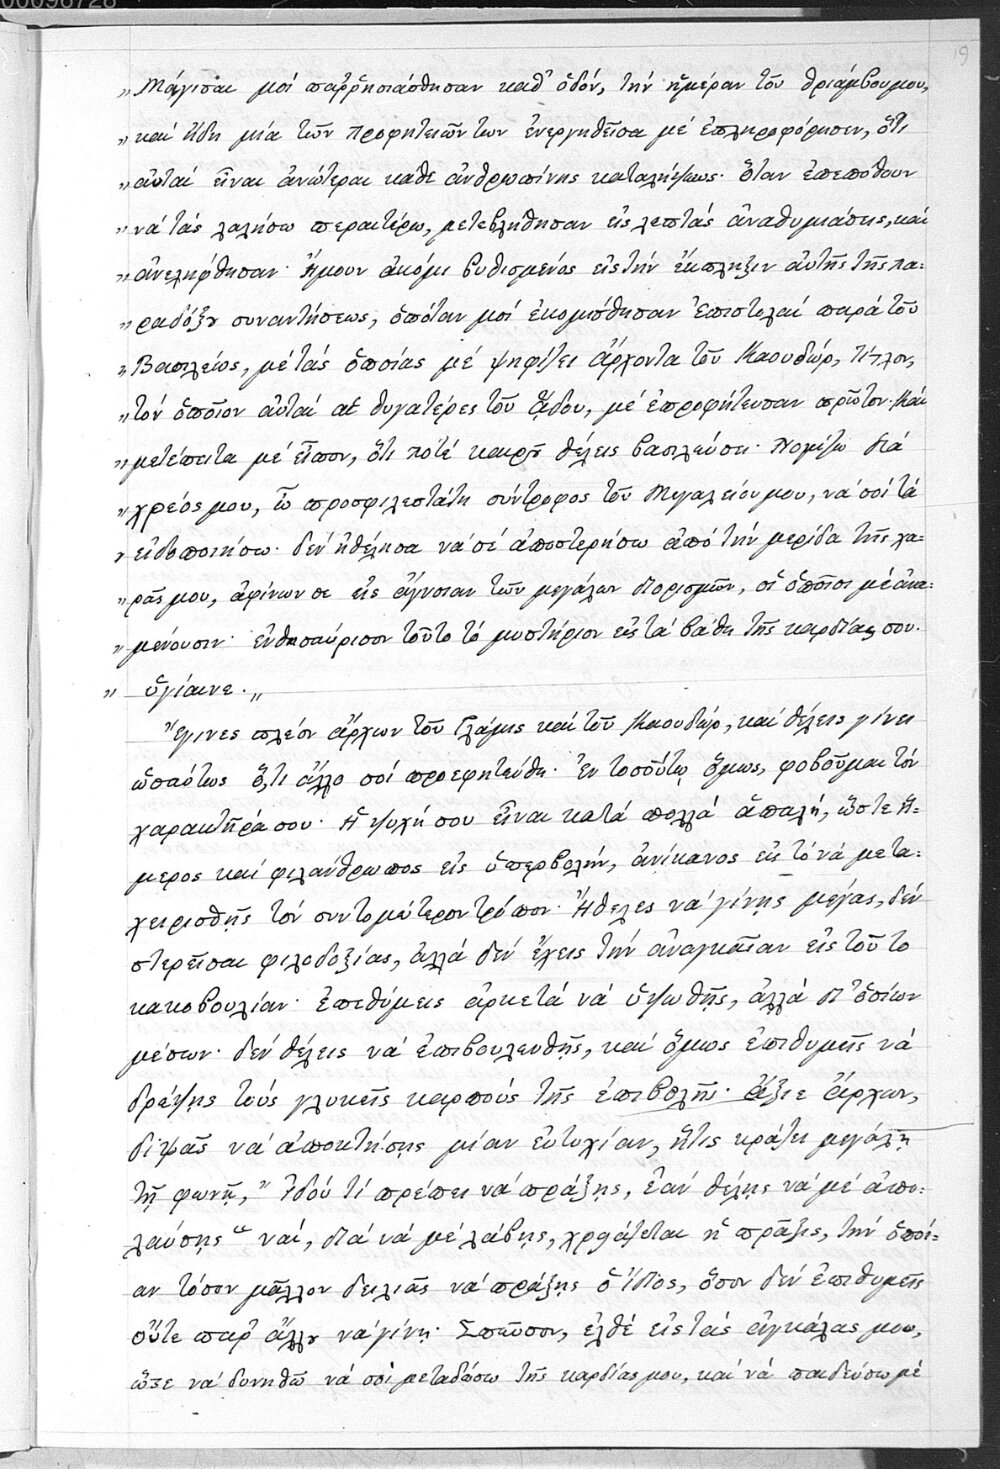 00098728
19
„Μάγισαι μοί παρρησιάσθησαν καθ' ὁδόν, τὴν ἡμέραν τοῦ θριάμβου μου,
„καί ἤδη μία τῶν προφητειῶν των ἐνεργηθεῖσα μέ ἐπληροφόρησεν, ὅτι
„αὐταί εἶναι ἀνώτεραι κάθε ἀνθρωπίνης καταλήψεως. ὅταν ἐπεπόθουν
„νά τάς λαλήσω περαιτέρω, μετεβλήθησαν εἰς λεπτάς ἀναθυμιάσεις, καί
„ἀνελήφθησαν. Ἤμουν ἀκόμι βυθισμένος εἰς τήν ἔκπληξιν αὐτῆς τῆς πα=
„ραδόξου συναντήσεως, ὁπόταν μοί ἐκομίσθησαν Ἐπιστολαί παρά τοῦ
„Βασιλείος, μέ τάς ὁποίας μέ ψηφίζει ἄρχοντα τοῦ Καουδώρ, τίτλον,
„τόν ὁποῖον αὐταί αἱ θυγατέρες τοῦ ᾅδου, μέ ἐπροφήτευσαν πρῶτον. Καί
„μετέπειτα μέ εἶπον, ὅτι ποτέ καιροῦ θέλεις βασιλεύσει. Νομίζω διά
„χρέος μου, ὦ προσφιλεστάτη σύντροφος τοῦ Μεγαλείου μου, νά σοί τά
„εἰδοποιήσω. δέν ἠθέλησα νά σέ ἀποστερήσω ἀπό τήν μερίδα τῆς χα=
„ρᾶς μου, ἀφίνων σε εἰς ἄγνοιαν τῶν μεγάλων διορισμῶν, οἱ ὁποῖοι μέ ἀνα=
„μένουσιν. ἐνθησαύρισον τοῦτο τό μυστήριον εἰς τά βάθη τῆς καρδίας σου.
„ ὑγίαινε.„
Ἔγινες πλέον ἄρχων τοῦ Γλάμις καί τοῦ Καουδώρ, καί θέλεις γίνει
ὡσαύτως ὅ,τι ἄλλο σοί προεφητεύθη. Ἐν τοσούτῳ ὅμως, φοβοῦμαι τόν
χαρακτῆρά σου. Ἡ ψυχή σου εἶναι κατά πολλά ἁπαλή, ὥστε ἥ=
μερος καί φιλάνθρωπος εἰς ὑπερβολήν, ἀνίκανος εἰς τό νά μετα=
χειρισθῇς τόν συντομώτερον τρόπον. Ἤθελες νά γίνῃς μέγας, δέν
στερεῖσαι φιλοδοξίας, ἀλλά δέν ἔχεις τήν ἀναγκαίαν εἰς τοῦτο
κακοβουλίαν. ἐπεθύμεις ἀρκετά νά ὑψωθῇς, ἀλλά δι' ὁσίων
μέσων. δέν θέλεις νά ἐπιβουλευθῇς, καί ὅμως ἐπιθυμεῖς νά
δρέψῃς τούς γλυκεῖς καρπούς τῆς ἐπιβολῆς. ἄξιε ἄρχων,
διψᾷς νά ἀποκτήσῃς μίαν εὐτυχίαν, ἥτις κράζει μεγάλῃ
τῇ φωνῇ, " Ἰδού τί πρέπει νά πράξῃς, ἐάν θέλῃς νά μέ ἀπο=
λαύσῃς " ναί, διά νά μέ λάβῃς, χρειάζεται ἡ πρᾶξις, τήν ὁποί=
αν τόσον μᾶλλον δειλιᾷς νά πράξῃς ὁ ἴδιος, ὅσον δέν ἐπιθυμεῖς
οὔτε παρ' ἄλλου νά γίνῃ. Σπεῦσον, ἐλθέ εἰς τάς ἀγκάλας μου,
ὥστε νά δυνηθῶ νά σοί μεταδώσω τῆς καρδίας μου, καί νά παιδεύσω μέ